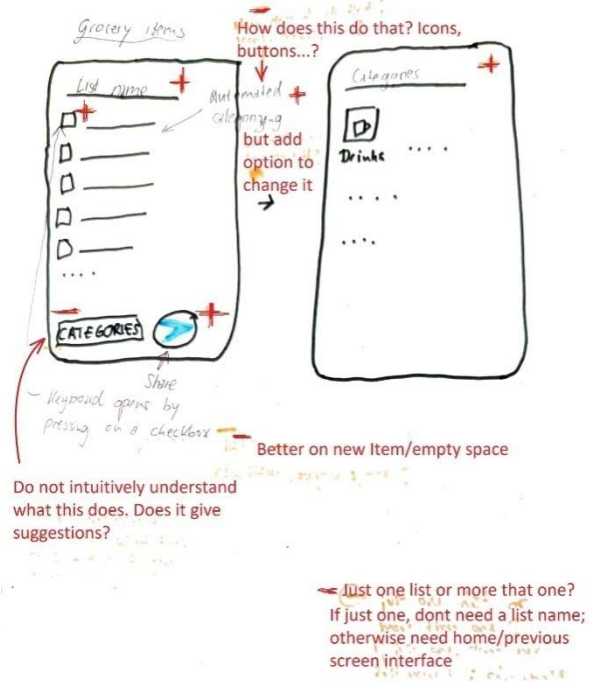 Grocery items
How does this do that? Icons,
buttons...?
List name
Automated
categorying
but add
option to
change it
Categories
Drinks
CATEGORIES
Share
- Keyboard opens by
pressing on a checkbox
Better on new Item/empty space
Do not intuitively understand
what this does. Does it give
suggestions?
Just one list or more that one?
If just one, dont need a list name;
otherwise need home/previous
screen interface